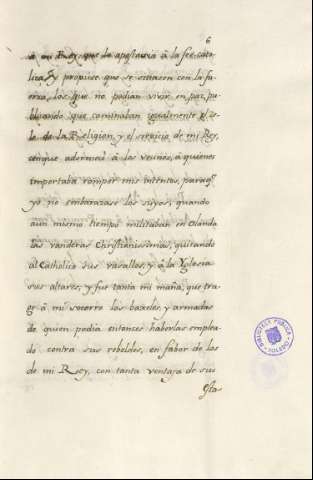 6
à mi Rey que la apostasia à la fee cato
lica, y propuse que se sitiasen con la fu
erza, los que no podian vivir en paz, pu
blicando que caminaban igualmente p.r
lo de la Religion, y el servicio de mi Rey,
conque adormeci à los vecinos, à quienes
importaba romper mis intentos, para q.e
yo no embarazase los suyos, quando
aun mismo tiempo militaban en Olanda
las vanderas Christianissimas, quitando
al Catholico sus vasallos, y à la Yglesia
sus altares, y fue tanta mi maña, que tra
g à mi socorro los baxeles, y armadas
de quien podia entonces haberlas emplea
do contra sus rebeldes, en fabor de los
de mi Rey, con tanta ventaja de sus
Esta
BIBLIOTECA PUBLICA
TOLEDO